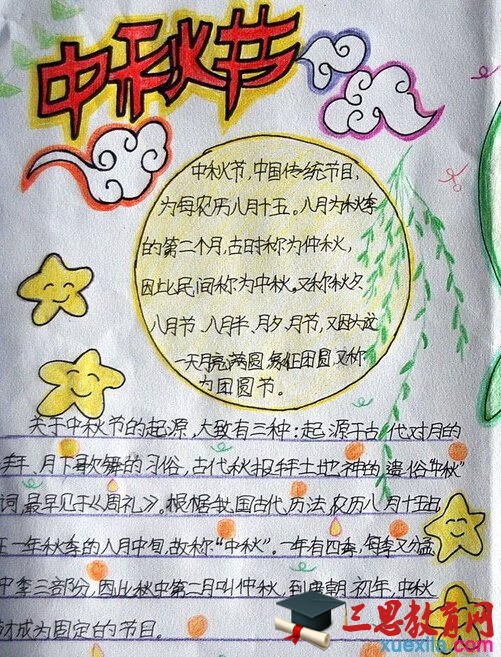 中秋节
中秋节，中国传统节日，
为每农历八月十五。八月为秋季
的第二个月，古时称为仲秋，
因此民间称为中秋。又称秋夕、
八月节、八月半、月夕、月节，又因为这
一天月亮满圆，象征团圆，又称
为团圆节。
关于中秋节的起源，大致有三种：起源于古代对月的
拜、月下歌舞的习俗，古代秋报拜土地神的遗俗“中秋”
词，最早见于《周礼》。根据我国古代历法，农历八月十五日
在一年秋季的八月中旬，故称“中秋”。一年有四季，每季又分孟
中季三部分，因此秋中第二月叫仲秋，到唐朝初年，中秋
才成为固定的节日。
三思教育网
xuexila.com